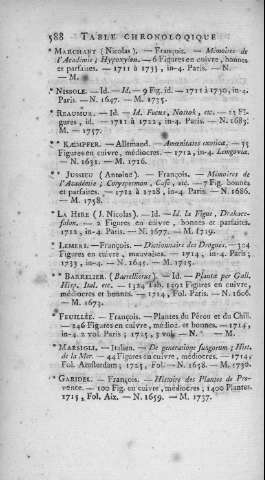 588 TABLE CHRONOLOGIQUE
* MARCHANT (Nicolas). — François. — Mémoires de
l'Académie; Hypoxylon. — 6 Figures en cuivre, bonnes
et parfaites. — 1711 à 1733, in-4. Paris. — N.
— M.
* NISSOLE. — Id. — Id. — 9 Fig. id. — 1711 à 1730, in-4.
Paris. — N. 1647. — M. 1735.
* REAUMUR. — Id. — Id. Fucus, Nostok, etc. — 13 Fi-
gures, id. — 1711 à 1722, in-4. Paris. — N. 1683;
M. — 1757.
* KÆMPFER. — Allemand. — Amœnitates exoticæ. — 35
Figures en cuivre, médiocres. — 1712, in-4. Lemgoviæ.
— N. 1651. — M. 1716.
* JUSSIEU (Antoine). — François. — Mémoires de
l'Académie; Corysperman, Café, etc. — 7 Fig. bonnes
et parfaites. — 1712 à 1728, in-4. Paris. — N. 1686.
— M. 1758.
* LA HIRE (J. Nicolas). — Id. — Id. la Figue, Drakoce-
falon. — 2 Figures en cuivre, bonnes et parfaites.
1712, in-4 Paris. — N. 1677. — M. 1719.
* LEMERI. — François. — Dictionnaire des Drogues. —
Figures en cuivre, mauvaises. — 1714, in-4. Paris;
1733, in-4. — N. 1645. — M. 1715.
* BARRELIER (Barrellierus). — Id. — Plantæ per Gall.
Hisp. Ital. etc. — 1324 tab. 1392 Figures en cuivre,
médiocres et bonnes. — 1714, Fol. Paris. — N. 1606.
— M. 1673.
* FEUILLÉE. — François. — Plantes du Pérou et du Chili.
— Figures en cuivre, médioc. et bonnes. — 1714,
in-4. 2 vol. Paris; 1725, 3 vol. — N. — M.
* MARSIGLI. — Italien. — De generatione fungorum; Hist.
de la Mer. — 44 Figures en cuivre, médiocres. — 1714,
Fol. Amsterdam; 1725, Fol. — N. 1658. — M. 1730.
* GARIDEL. — François. — Histoire des Plantes de Pro-
vence. — 100 Fig. en cuivre, médiocres; 1400 Plantes.
1715, Fol. Aix. — N. 1659. — M. 1737.